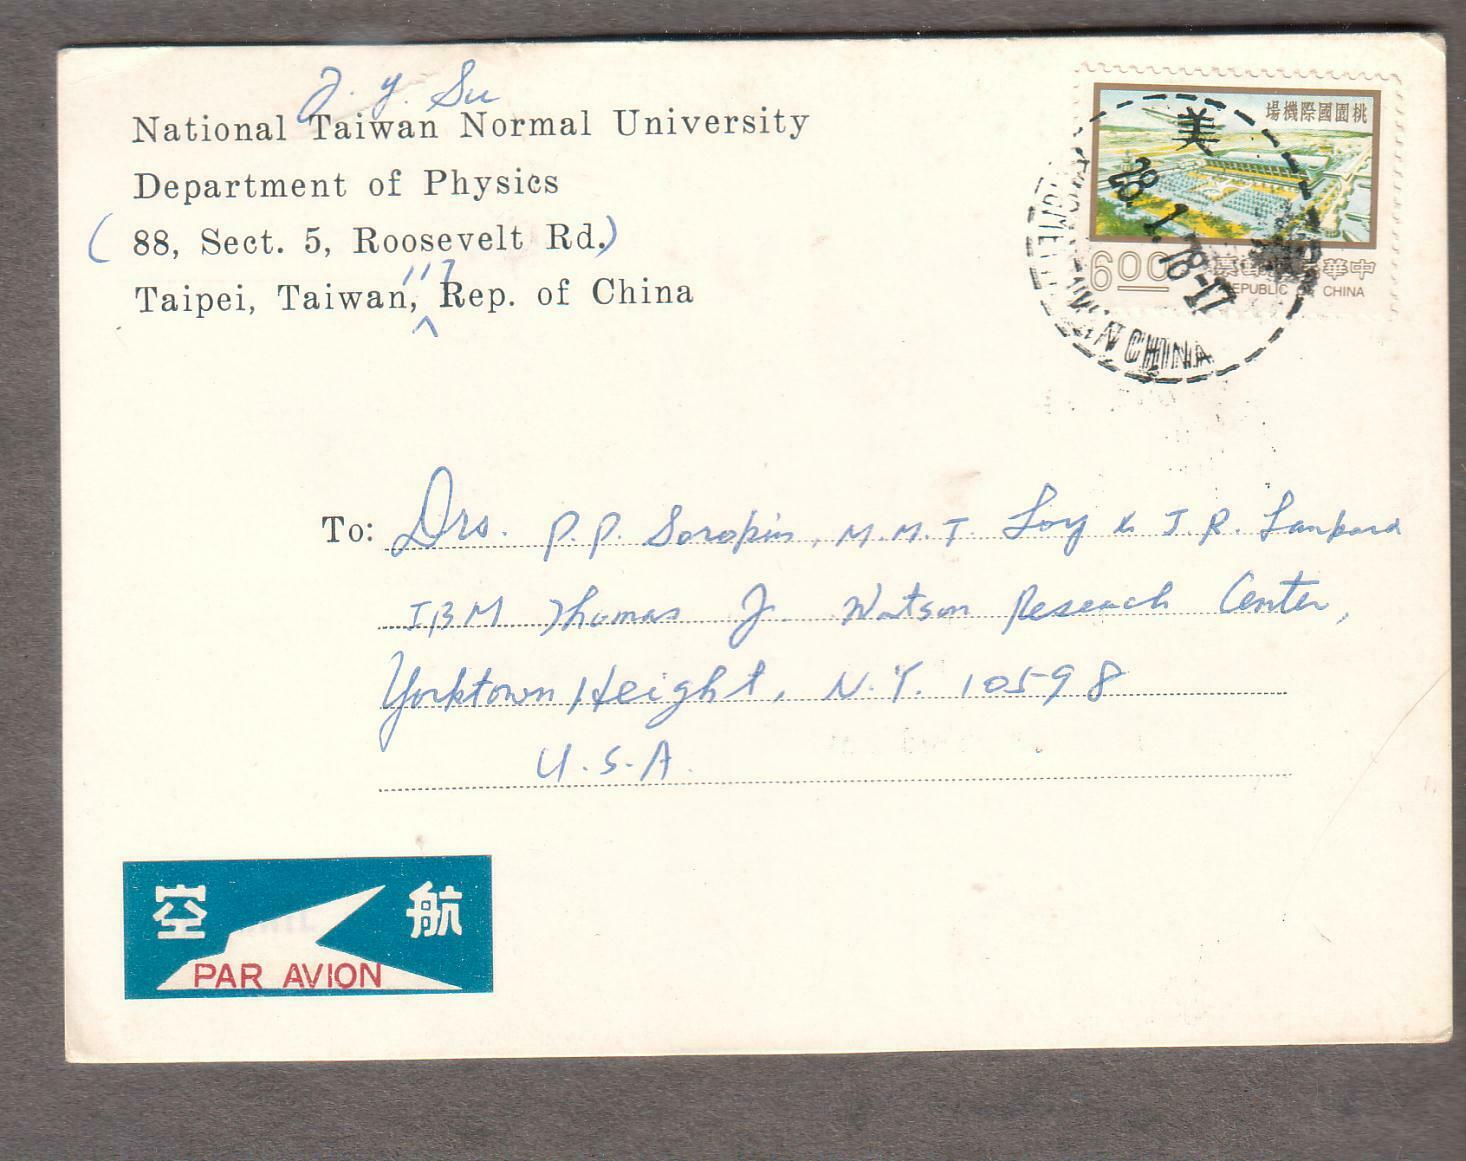 J. Y. Su
National Taiwan Normal University
Department of Physics
(88, Sect. 5, Roosevelt Rd.)
Taipei, Taiwan, 117 Rep. of China
桃園國際機場
美
28. 1. 78-17
CHINA
600
中華
REPUBLIC CHINA
To: Drs. P. P. Sorokin, M. M. T. Loy & J. R. Lankard
IBM Thomas J. Watson Reseach Center,
Yorktown Height, N.Y. 10598
U.S.A.
航空
PAR AVION